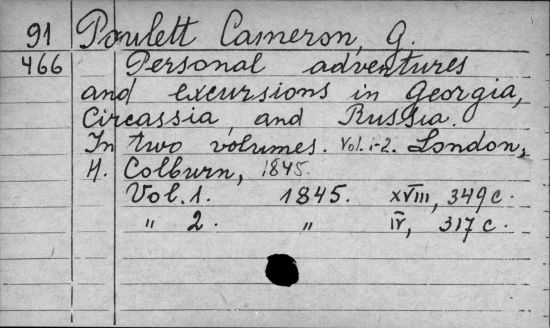 91 Poulett Cameron, G.
466 Personal adventures
and excursions in Georgia,
Circassia, and Russia.
In two volumes. Vol. 1-2. London,
H. Colburn, 1845.
Vol. 1. 1845. XVIII, 349 c.
" 2. " IV, 317 c.